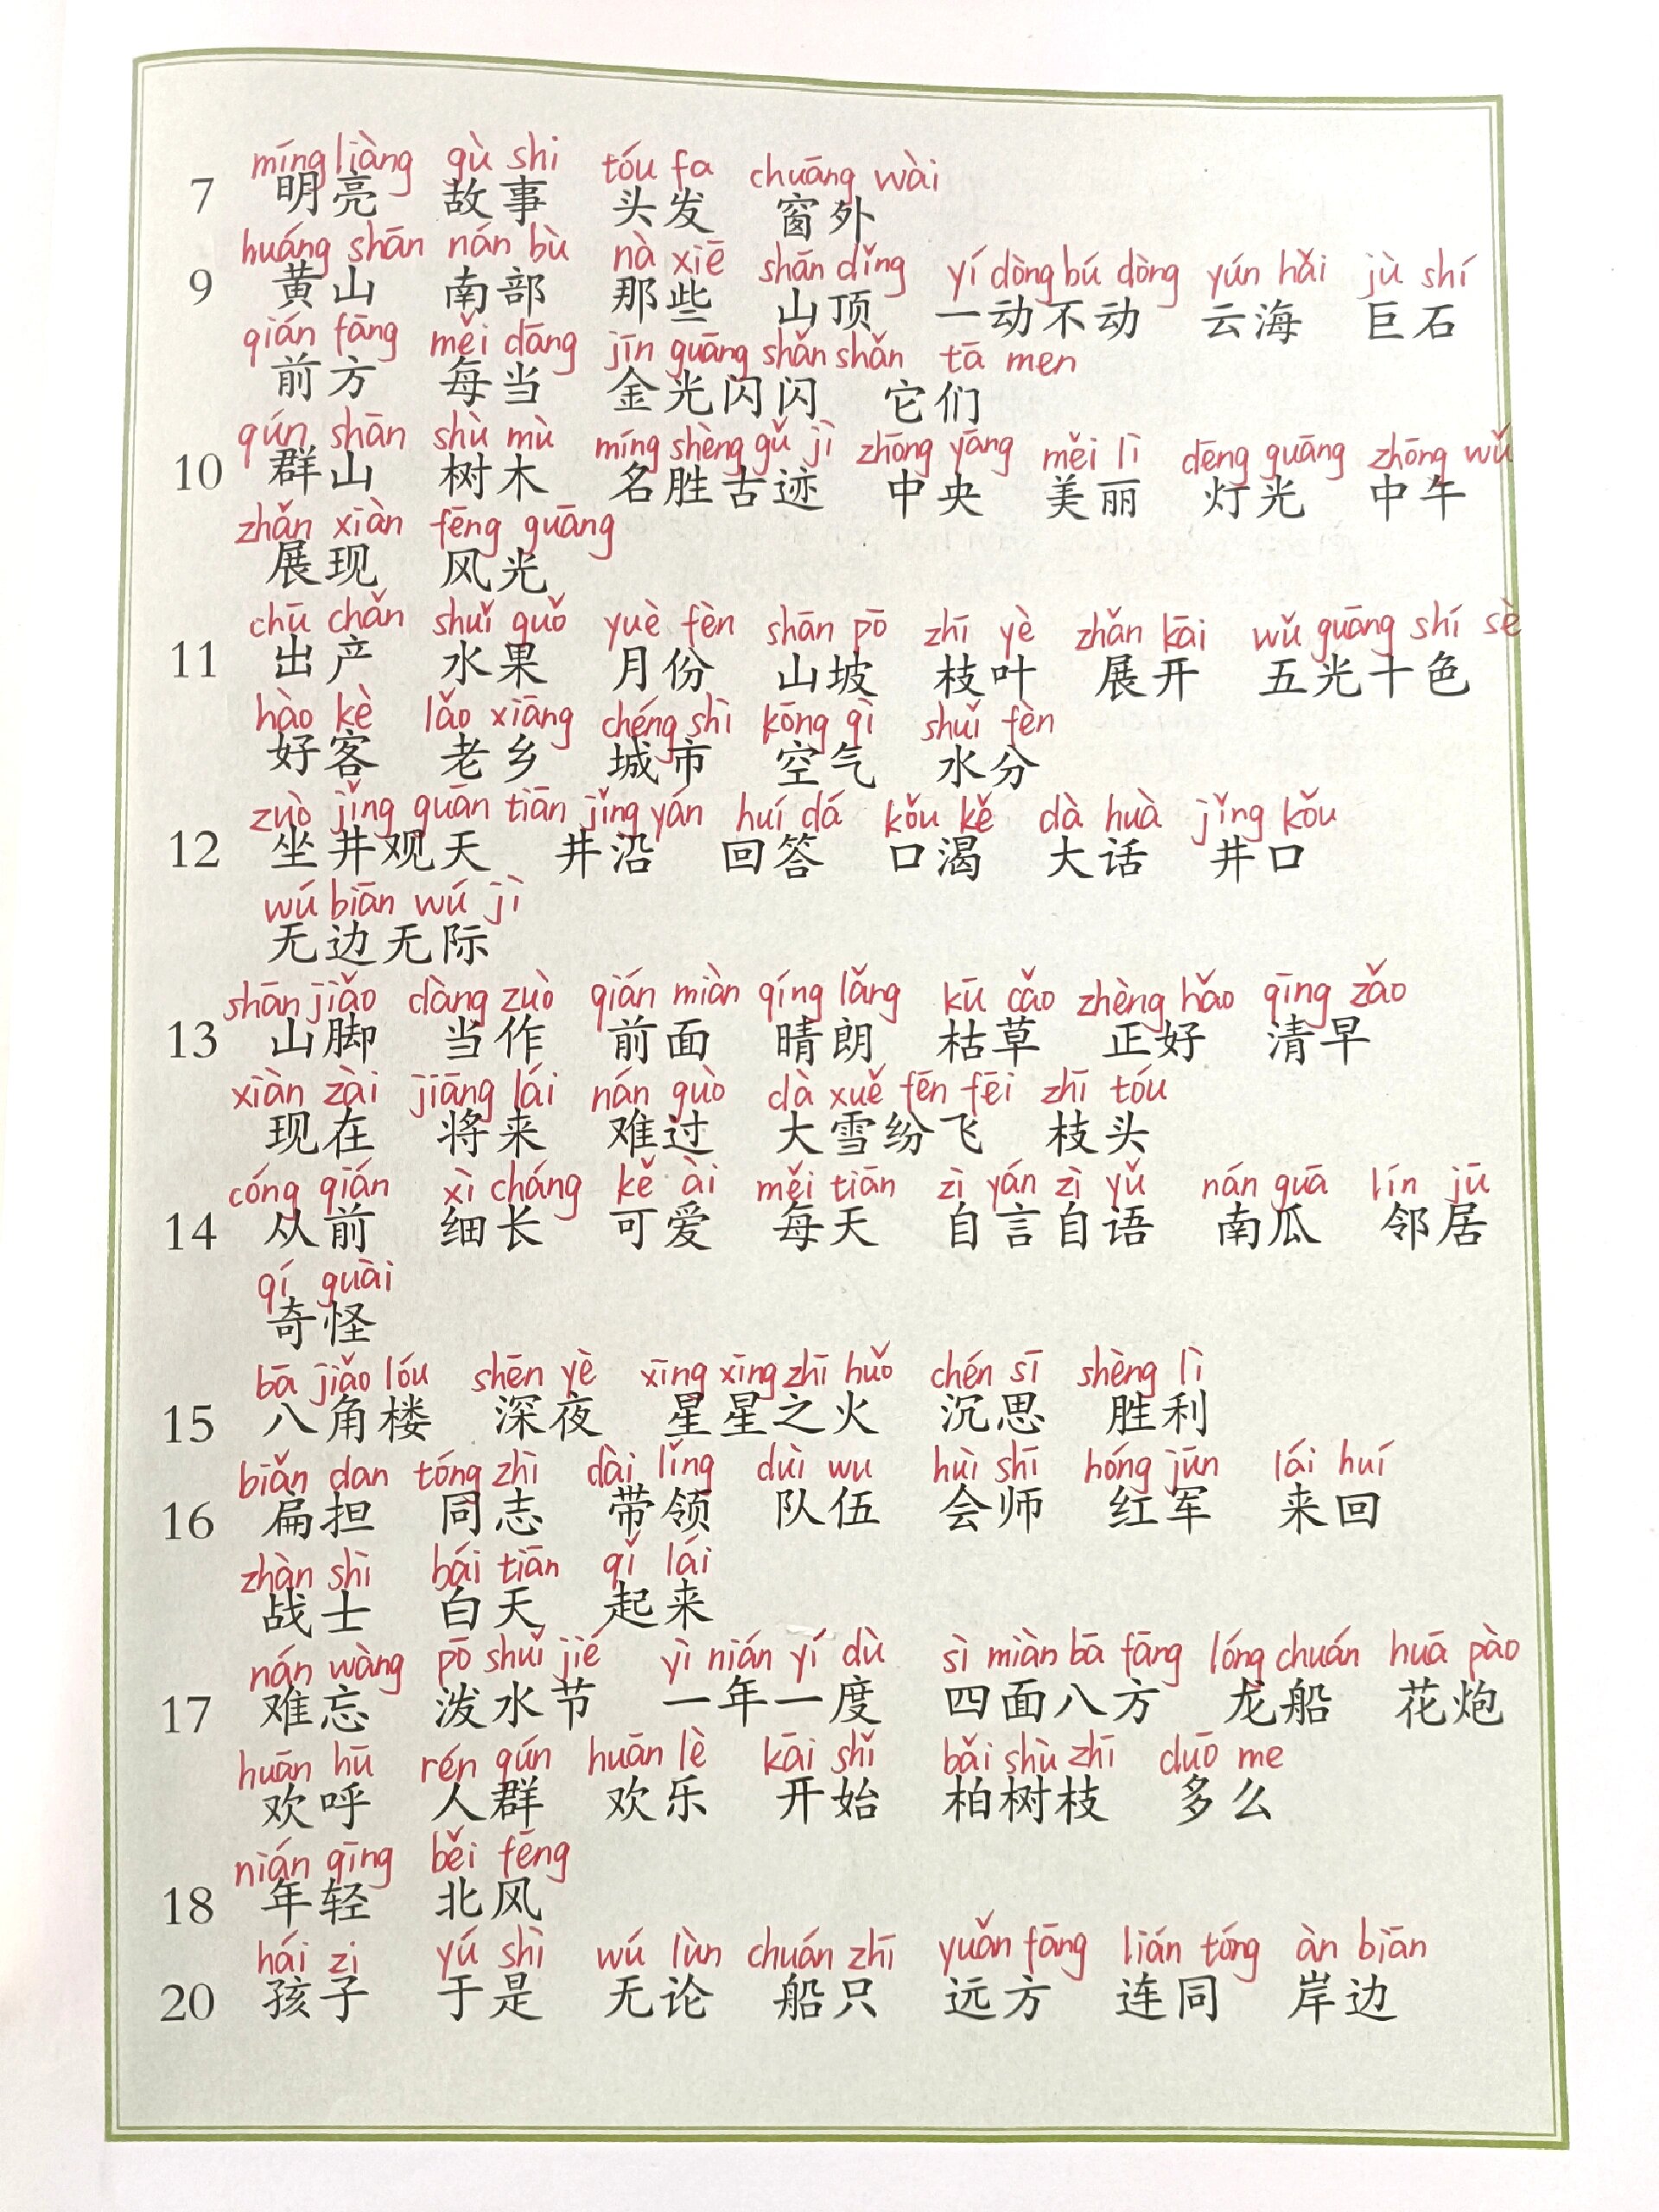 míng liàng gù shi tóu fa chuāng wài
7 明亮 故事 头发 窗外
huáng shān nán bù nà xiē shān dǐng yí dòng bú dòng yún hǎi jù shí
9 黄山 南部 那些 山顶 一动不动 云海 巨石
qián fāng měi dāng jīn guāng shǎn shǎn tā men
前方 每当 金光闪闪 它们
qún shān shù mù míng shèng gǔ jì zhōng yāng měi lì dēng guāng zhōng wǔ
10 群山 树木 名胜古迹 中央 美丽 灯光 中午
zhǎn xiàn fēng guāng
展现 风光
chū chǎn shuǐ guǒ yuè fèn shān pō zhī yè zhǎn kāi wǔ guāng shí sè
11 出产 水果 月份 山坡 枝叶 展开 五光十色
hào kè lǎo xiāng chéng shì kōng qì shuǐ fèn
好客 老乡 城市 空气 水分
zuò jǐng guān tiān jǐng yán huí dá kǒu kě dà huà jǐng kǒu
12 坐井观天 井沿 回答 口渴 大话 井口
wú biān wú jì
无边无际
shān jiǎo dàng zuò qián miàn qíng lǎng kū cǎo zhèng hǎo qīng zǎo
13 山脚 当作 前面 晴朗 枯草 正好 清早
xiàn zài jiāng lái nán guò dà xuě fēn fēi zhī tóu
现在 将来 难过 大雪纷飞 枝头
cóng qián xì cháng kě ài měi tiān zì yán zì yǔ nán guā lín jū
14 从前 细长 可爱 每天 自言自语 南瓜 邻居
qí guài
奇怪
bā jiǎo lóu shēn yè xīng xīng zhī huǒ chén sī shèng lì
15 八角楼 深夜 星星之火 沉思 胜利
biǎn dan tóng zhì dài lǐng duì wu huì shī hóng jūn lái huí
16 扁担 同志 带领 队伍 会师 红军 来回
zhàn shì bái tiān qǐ lái
战士 白天 起来
nán wàng pō shuǐ jié yì nián yí dù sì miàn bā fāng lóng chuán huā pào
17 难忘 泼水节 一年一度 四面八方 龙船 花炮
huān hū rén qún huān lè kāi shǐ bǎi shù zhī duō me
欢呼 人群 欢乐 开始 柏树枝 多么
nián qīng běi fēng
18 年轻 北风
hái zi yú shì wú lùn chuán zhī yuǎn fāng lián tóng àn biān
20 孩子 于是 无论 船只 远方 连同 岸边